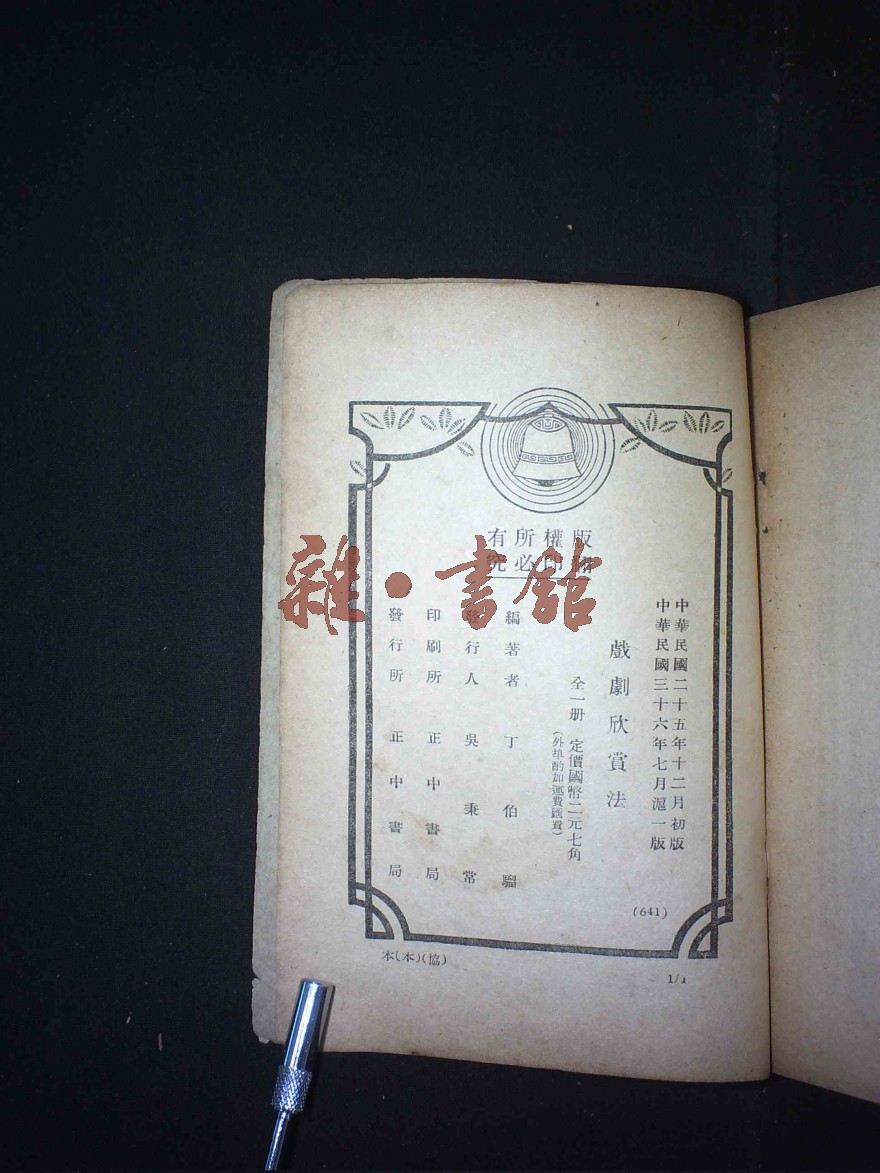 版權所有
翻印必究
中華民國二十五年十二月初版
中華民國三十六年七月滬一版
(641)
戲劇欣賞法
全一册　定價國幣二元七角
(外埠酌加運費匯費)
編著者　丁伯騮
發行人　吳秉常
印刷所　正中書局
發行所　正中書局
本(本)(協)
1/1
雜·書館